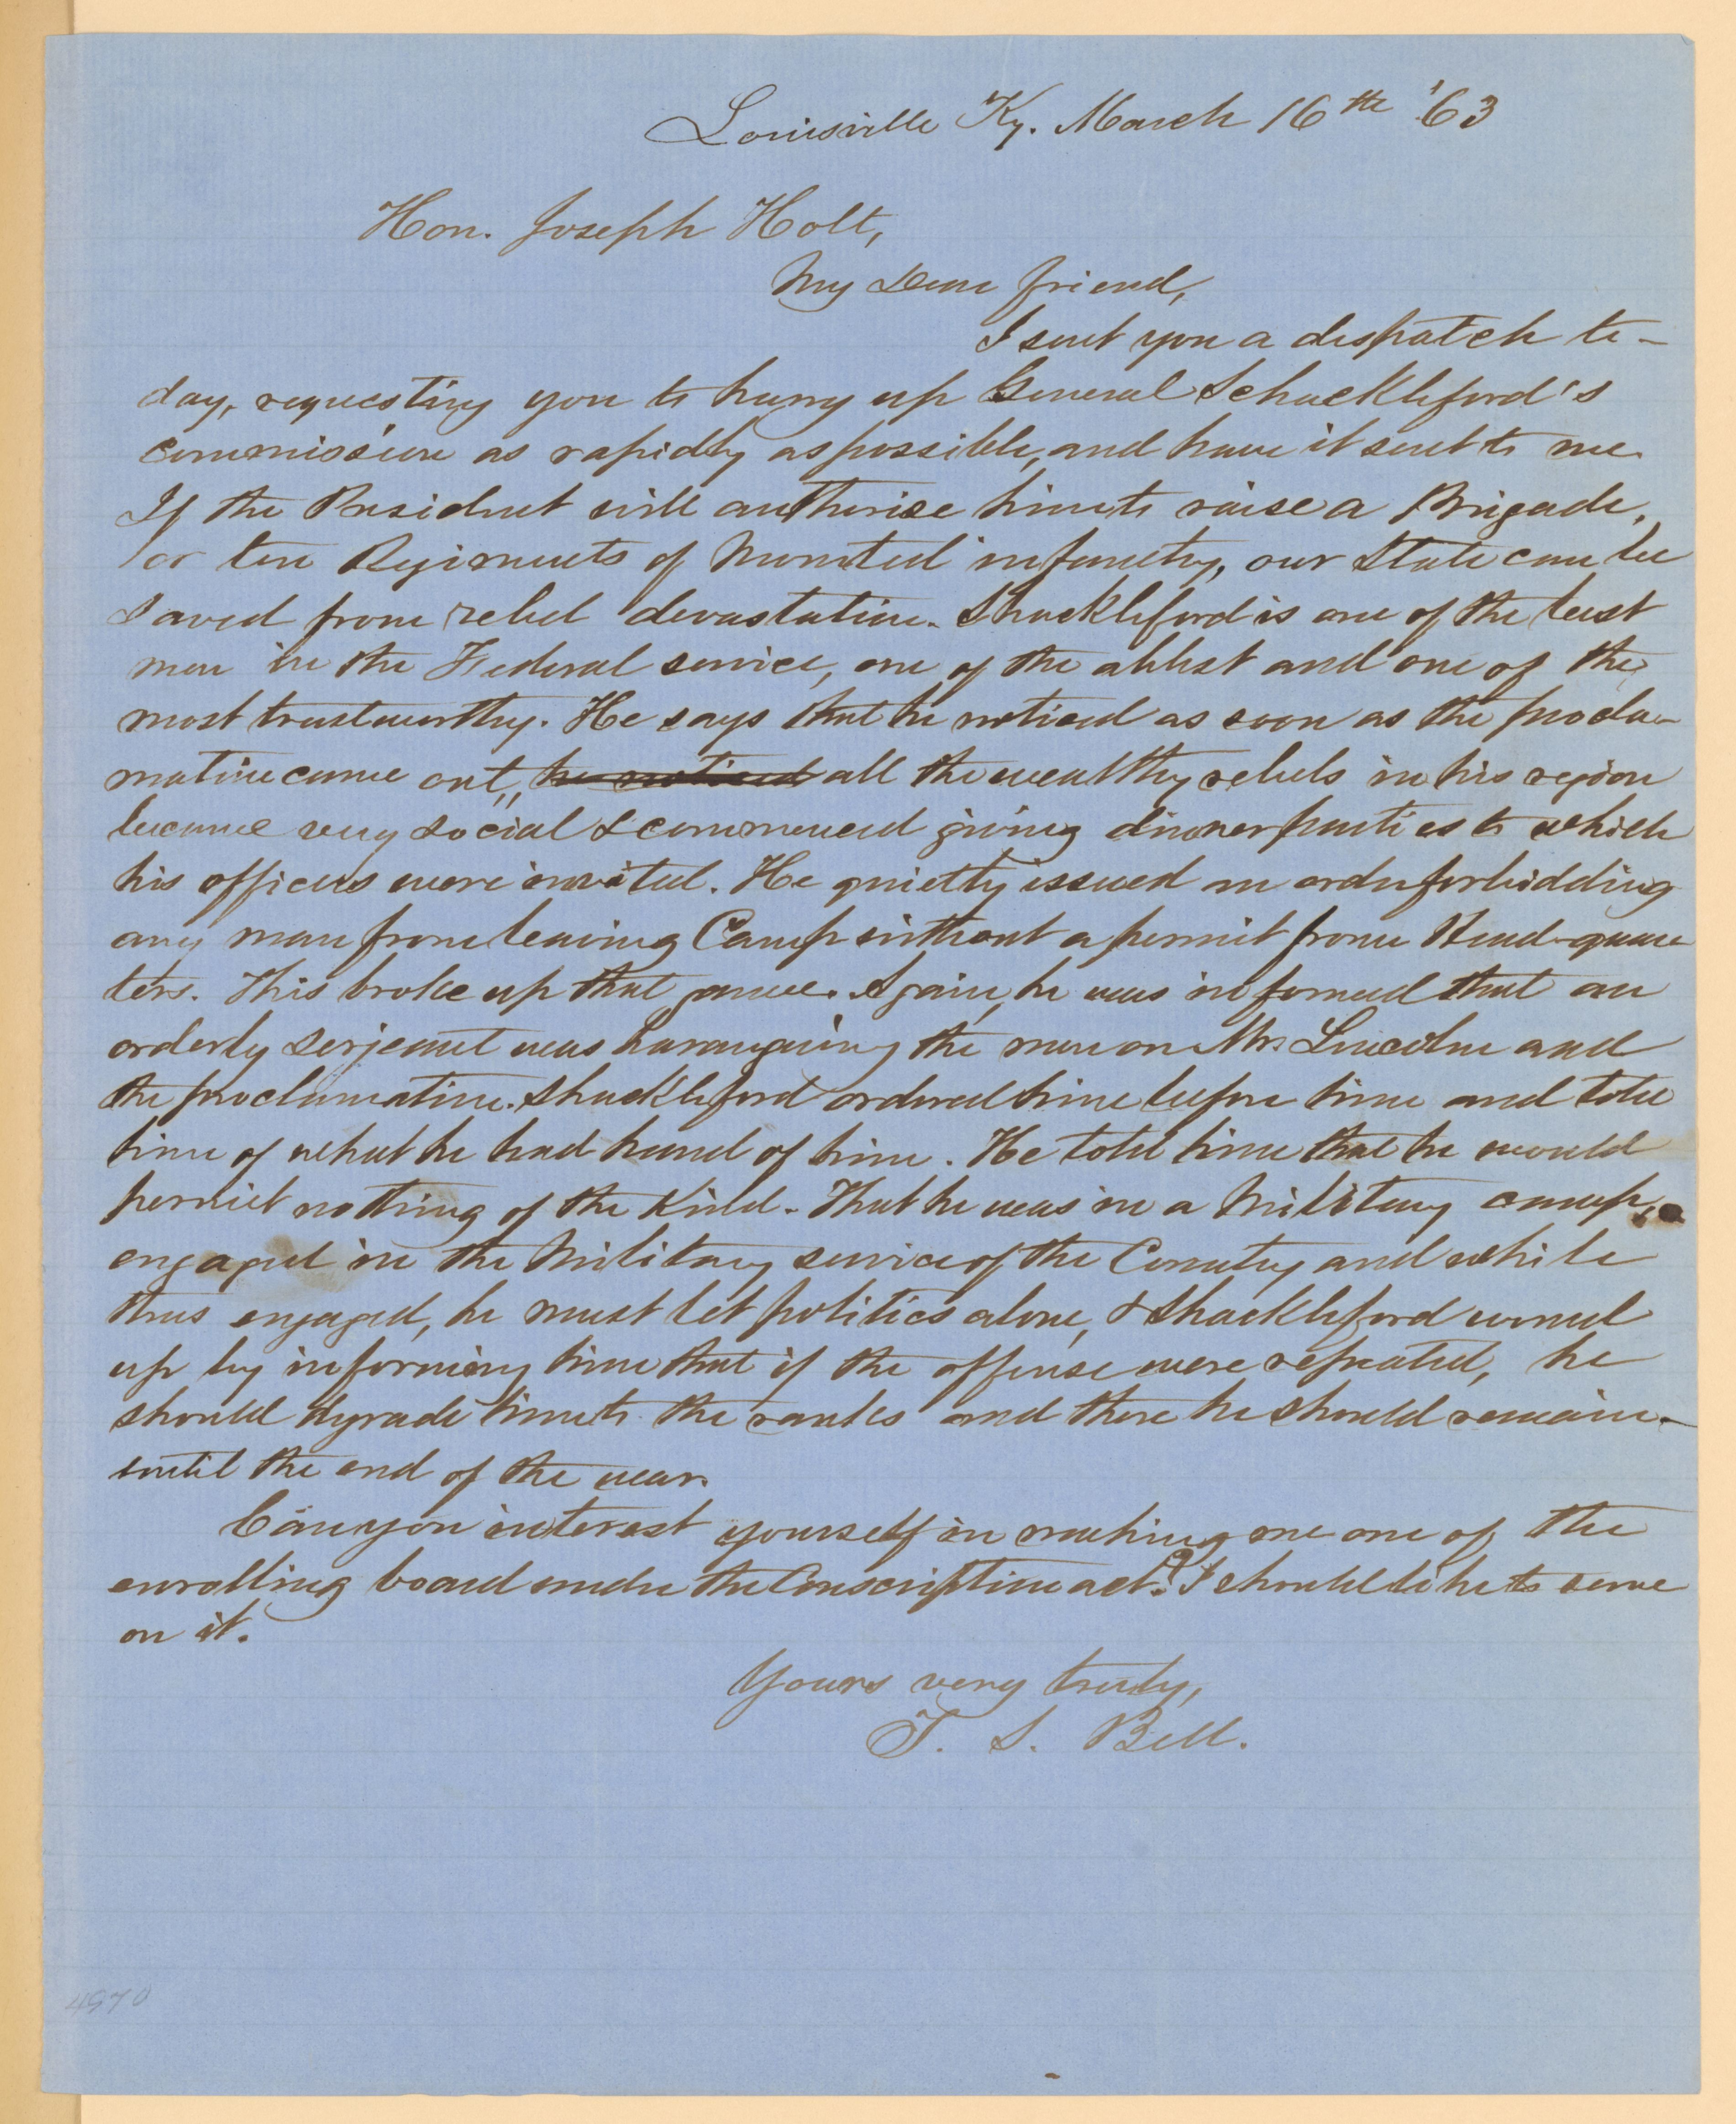 Louisville Ky. March 16th '63
Hon. Joseph Holt,
My Dear friend,
I sent you a dispatch to-
day, requesting you to hurry up General Schackleford's
commission as rapidly as possible, and have it sent to me.
If the President will authorise him to raise a Brigade,
or ten Regiments of Mounted infantry, our State can be
saved from rebel devastation. Shackleford is one of the best
men in the Federal service, one of the ablest and one of the
most trustworthy. He says that he noticed as soon as the procla-
mation came out, he noticed all the wealthy rebels in his region
became very social & commenced giving dinner parties to which
his officers were invited. He quietly issued an order forbidding
any man from leaving Camp without a permit from Head-quar-
ters. This broke up that game. Again, he was informed that an
orderly serjeant was haranguing the men on Mr. Lincoln and
the proclamation. Shackleford ordered him before him and told
him of what he had heard of him. He told him that he would
permit nothing of the kind. That he was in a Military camp,
engaged in the Military service of the Country and while
thus engaged, he must let politics alone, & Shackleford wound
up by informing him that if the offense were repeated, he
should degrade him to the ranks and there he should remain
until the end of the war.
Can you interest yourself in making me one of the
enrolling board under the Conscription act? I should like to serve
on it.
Yours very truly,
T. S. Bell.
4970